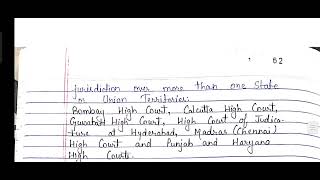 62
jurisdiction over more than one State
or Union Territories:
Bombay High Court, Calcutta High Court,
Guwahati High Court, High Court of Judica-
ture at Hyderabad, Madras (Chennai)
High Court and Punjab and Haryana
High Courts.